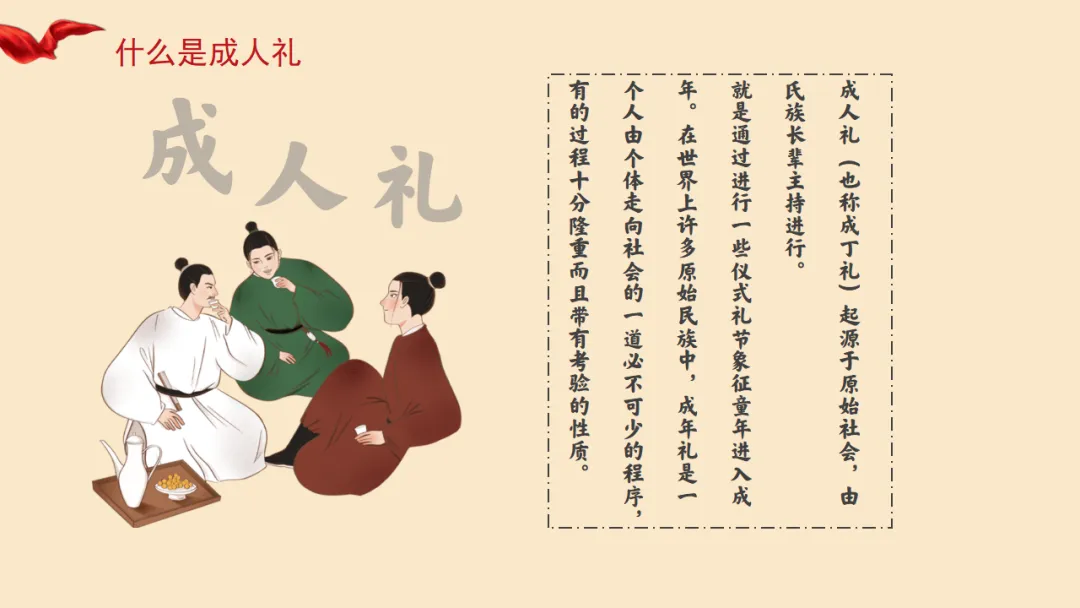 什么是成人礼
成人礼
成人礼（也称成丁礼）起源于原始社会，由
氏族长辈主持进行。
就是通过进行一些仪式礼节象征童年进入成
年。在世界上许多原始民族中，成年礼是一
个人由个体走向社会的一道必不可少的程序，
有的过程十分隆重而且带有考验的性质。